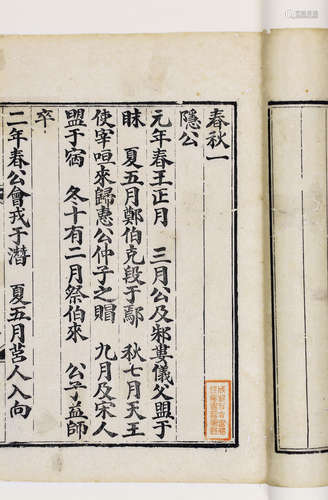 春秋一
隱公
元年春王正月　三月公及邾婁儀父盟于
眛　夏五月鄭伯克段于鄢　秋七月天王
使宰咺來歸惠公仲子之賵　九月及宋人
盟于宿　冬十有二月祭伯來　公子益師
卒
二年春公會戎于潛　夏五月莒人入向